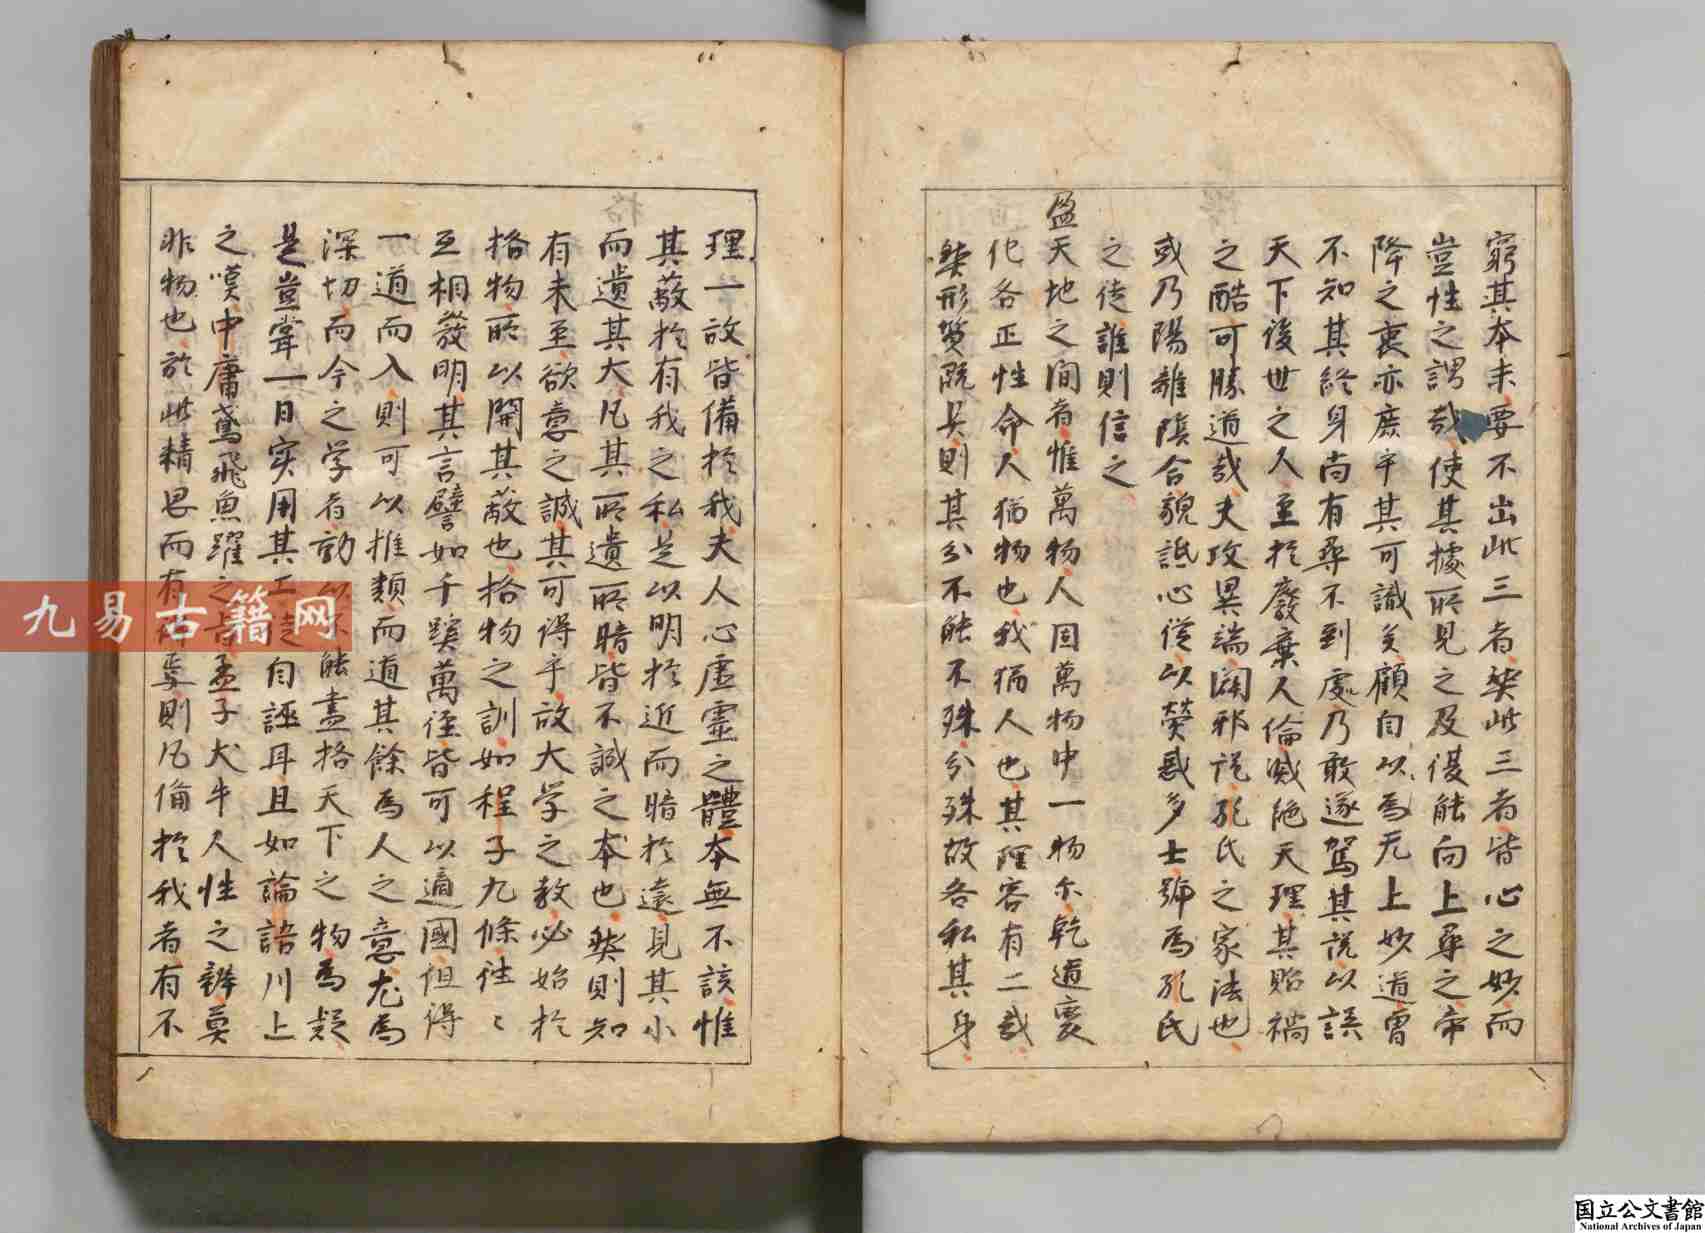 窮其本末要不出此三者契此三者皆心之妙而
豈性之謂哉使其據所見之及復能向上尋之帝
降之衷亦庶乎其可識矣顧自以為无上妙道曽
不知其終身尚有尋不到處乃敢遂駕其説以誤
天下後世之人至於廢棄人倫滅絶天理其貽禍
之酷可勝道哉夫攻異端闢邪説孔氏之家法也
或乃陽離陰合貌詆心從以熒惑多士號為孔氏
之徒誰則信之
盈天地之間者惟萬物人固萬物中一物尔乾道變
化各正性命人猶物也我猶人也其理容有二哉
然形質既具則其分不能不殊分殊故各私其身
理一故皆備於我夫人心虚靈之體本無不該惟
其蔽於有我之私是以明於近而暗於遠見其小
而遺其大凡其所遺所暗皆不誠之本也然則知
有未至欲意之誠其可得乎故大学之教必始於
格物所以開其蔽也格物之訓如程子九條往〻
互相發明其言譬如千蹊萬徑皆可以適國但得
一道而入則可以推類而通其餘為人之意尤為
深切而今之学者動以不能盡格天下之物為疑
是豈嘗一日実用其工徒自誣耳且如論語川上
之嘆中庸鳶飛魚躍之旨孟子犬牛人性之辯莫
非物也於此精思而有得焉則凡備於我者有不
九易古籍网
国立公文書館
National Archives of Japan